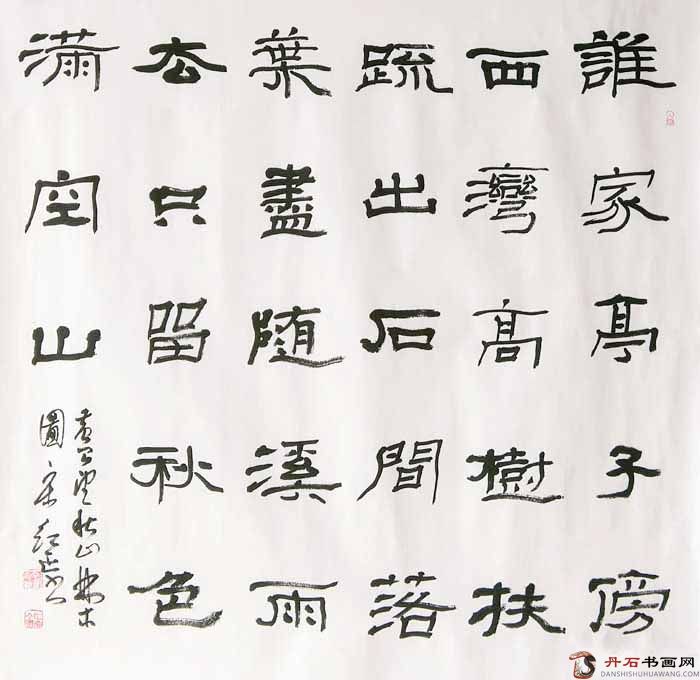 誰家亭子傍
西灣高樹扶
疏出石間落
葉盡隨溪雨
去只留秋色
滿空山
黄公望秋山林木
圖宋红
丹石书画网
DANSHISHUHUAWANG.COM